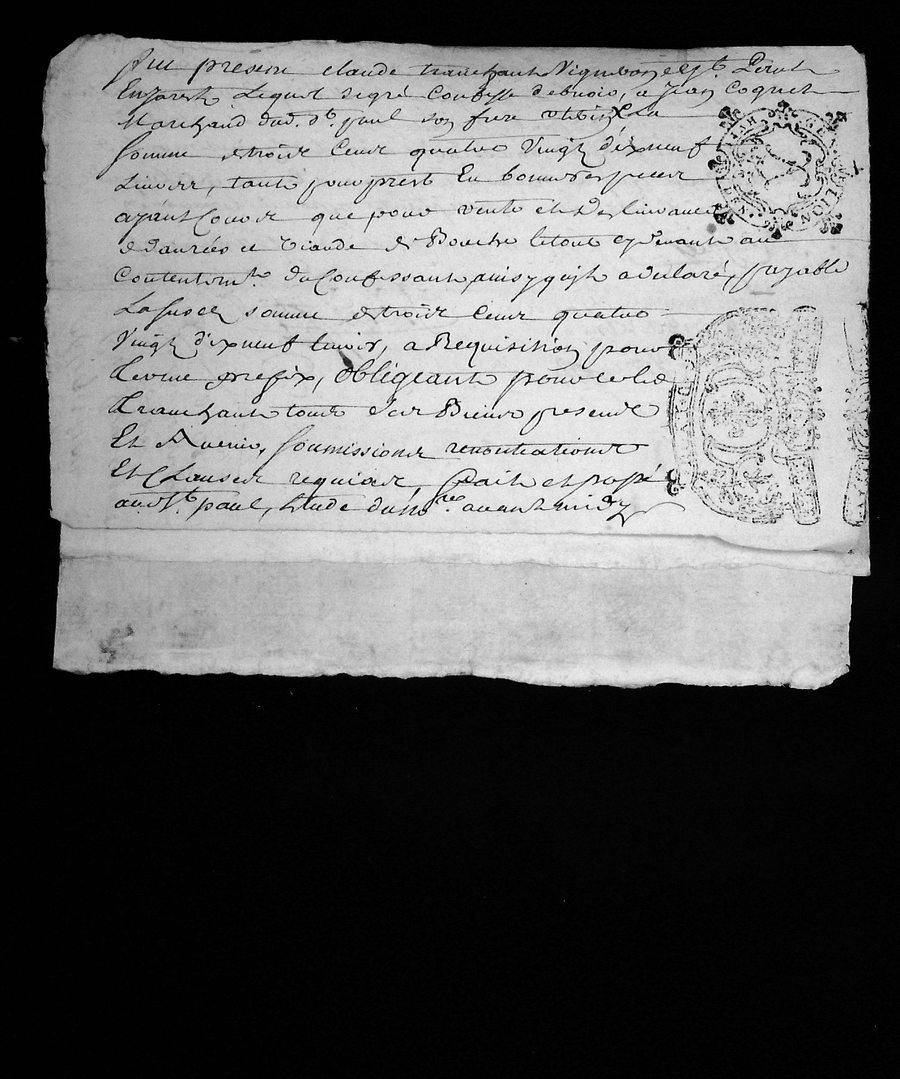 fut present claude tranchant Vigneron de St. Perent
En Jarest Lequel de gré Confesse debvoir, a Jean Coquet
Marchand dud. St. paul son frere utherin La
somme de trois Cens quatre Vingt dixneuf
Livres, tant pour prest En bonnes especes
ayant Cours que pour vente et Deslivrance
de danrées et Viande de Bouche le tout cy devant au
Contentemt. du Confessant ainsy quil a declaré, payable
La susd. somme de trois Cens quatre
Vingt dixneuf livres, a Requisition pour
terme prefix, obligeant pour ce led.
tranchant tous & ses Biens presens
Et Avenir, soumissions renontiations
Et Clauses requises, fait et passé
aud. St. paul, Etude du nore. avant midy
GE